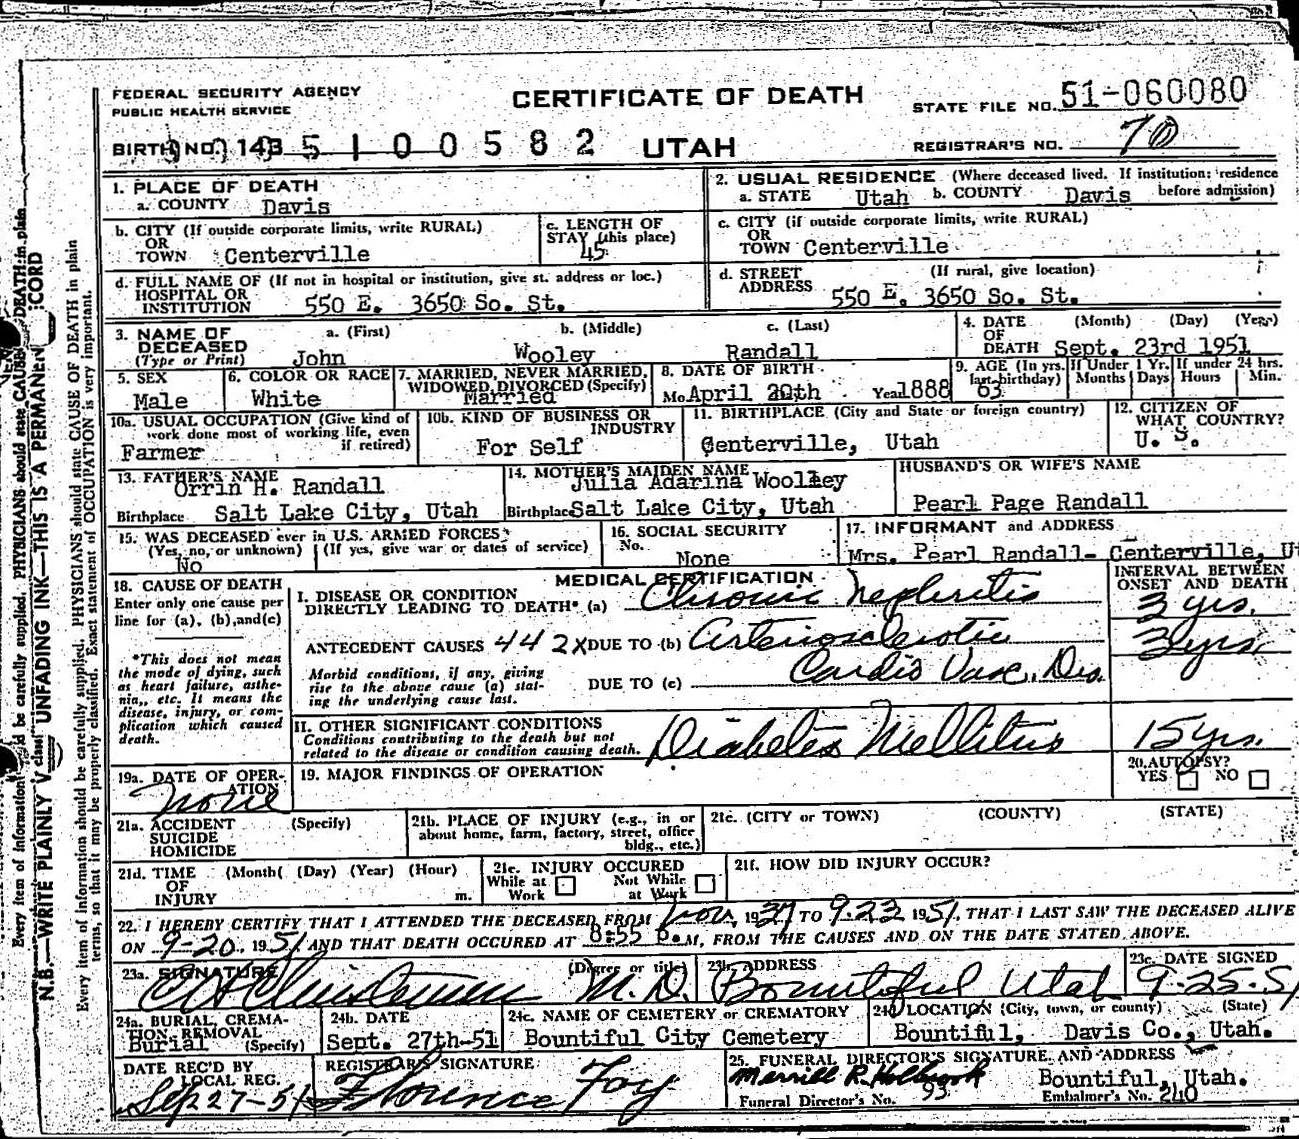 FEDERAL SECURITY AGENCY
PUBLIC HEALTH SERVICE
CERTIFICATE OF DEATH
STATE FILE NO. 51-060080
BIRTH NO. 143 5 1 0 0 5 8 2 UTAH
REGISTRAR'S NO. 70
1. PLACE OF DEATH
a. COUNTY Davis
2. USUAL RESIDENCE (Where deceased lived. If institution: residence before admission)
a. STATE Utah b. COUNTY Davis
b. CITY (If outside corporate limits, write RURAL)
OR
TOWN Centerville
c. LENGTH OF
STAY (this place)
45
c. CITY (if outside corporate limits, write RURAL)
OR
TOWN Centerville
d. FULL NAME OF (If not in hospital or institution, give st. address or loc.)
HOSPITAL OR
INSTITUTION 550 E. 3650 So. St.
d. STREET (If rural, give location)
ADDRESS 550 E. 3650 So. St.
3. NAME OF
DECEASED
(Type or Print)
a. (First) b. (Middle) c. (Last)
John Wooley Randall
4. DATE (Month) (Day) (Year)
OF
DEATH Sept. 23rd 1951
5. SEX
Male
6. COLOR OR RACE
White
7. MARRIED, NEVER MARRIED,
WIDOWED, DIVORCED (Specify)
Married
8. DATE OF BIRTH
Mo April 20th Year 1888
9. AGE (In yrs. last birthday)
63
If Under 1 Yr.
Months Days
If under 24 hrs.
Hours Min.
10a. USUAL OCCUPATION (Give kind of
work done most of working life, even
if retired)
Farmer
10b. KIND OF BUSINESS OR
INDUSTRY
For Self
11. BIRTHPLACE (City and State or foreign country)
Centerville, Utah
12. CITIZEN OF
WHAT COUNTRY?
U. S.
13. FATHER'S NAME
Orrin H. Randall
Birthplace Salt Lake City, Utah
14. MOTHER'S MAIDEN NAME
Julia Adarina Woolley
Birthplace Salt Lake City, Utah
HUSBAND'S OR WIFE'S NAME
Pearl Page Randall
15. WAS DECEASED ever in U.S. ARMED FORCES?
(Yes, no, or unknown) (If yes, give war or dates of service)
No
16. SOCIAL SECURITY
No.
None
17. INFORMANT and ADDRESS
Mrs. Pearl Randall- Centerville, Ut
18. CAUSE OF DEATH
Enter only one cause per
line for (a), (b), and (c)
*This does not mean
the mode of dying, such
as heart failure, asthe-
nia,, etc. It means the
disease, injury, or com-
plication which caused
death.
MEDICAL CERTIFICATION
INTERVAL BETWEEN
ONSET AND DEATH
I. DISEASE OR CONDITION
DIRECTLY LEADING TO DEATH* (a) Chronic Nephritis 3 yrs.
ANTECEDENT CAUSES 442X DUE TO (b) Arteriosclerotic 3 yrs.
Morbid conditions, if any, giving
rise to the above cause (a) stat-
ing the underlying cause last.
DUE TO (c) Cardio Vasc. Dis.
II. OTHER SIGNIFICANT CONDITIONS
Conditions contributing to the death but not
related to the disease or condition causing death.
Diabetes Mellitus 15 yrs.
19a. DATE OF OPER-
ATION
None
19. MAJOR FINDINGS OF OPERATION
20. AUTOPSY?
YES NO
21a. ACCIDENT (Specify)
SUICIDE
HOMICIDE
21b. PLACE OF INJURY (e.g., in or
about home, farm, factory, street, office
bldg., etc.)
21c. (CITY or TOWN) (COUNTY) (STATE)
21d. TIME (Month( (Day) (Year) (Hour)
OF
INJURY m.
21e. INJURY OCCURED
While at Work Not While at Work
21f. HOW DID INJURY OCCUR?
22. I HEREBY CERTIFY THAT I ATTENDED THE DECEASED FROM Nov, 1937 TO 9-23 1951, THAT I LAST SAW THE DECEASED ALIVE
ON 9-20, 1951 AND THAT DEATH OCCURED AT 8:55 P.M, FROM THE CAUSES AND ON THE DATE STATED ABOVE.
23a. SIGNATURE (Degree or title)
M.D.
23b. ADDRESS
Bountiful Utah
23c. DATE SIGNED
9-25-51
24a. BURIAL, CREMA-
TION, REMOVAL
Burial (Specify)
24b. DATE
Sept. 27th-51
24c. NAME OF CEMETERY or CREMATORY
Bountiful City Cemetery
24d. LOCATION (City, town, or county) (State)
Bountiful, Davis Co., Utah.
DATE REC'D BY
LOCAL REG.
Sep 27-51
REGISTRAR'S SIGNATURE
Florence Foy
25. FUNERAL DIRECTOR'S SIGNATURE AND ADDRESS
Merrill R. Holbrook Bountiful, Utah.
Funeral Director's No. 93 Embalmer's No. 240
N.B.—WRITE PLAINLY UNFADING INK—THIS IS A PERMANENT RECORD
Every item of information should be carefully supplied. PHYSICIANS should state CAUSE OF DEATH in plain
terms, so that it may be properly classified. Exact statement of OCCUPATION is very important.